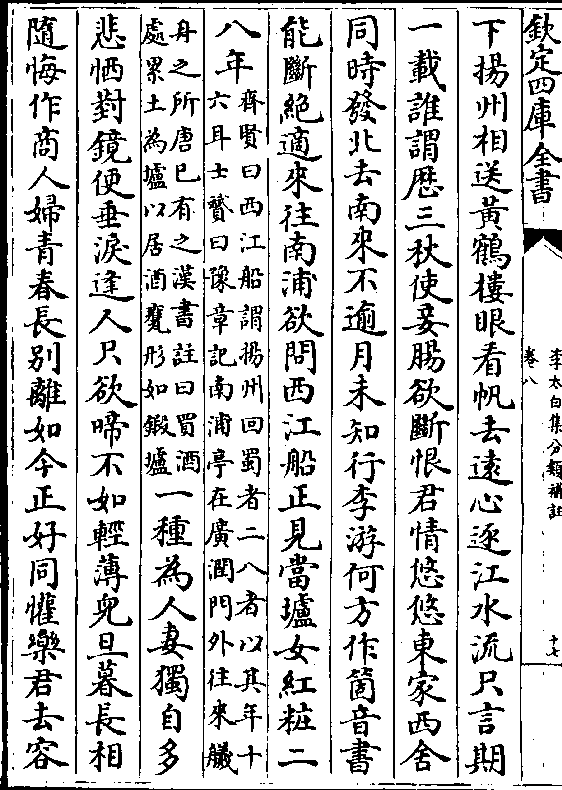 欽定四庫全書
李太白集分類補註
卷八
十七
下揚州相送黃鶴樓眼看帆去遠心逐江水流只言期
一載誰謂歴三秋使妾腸欲斷恨君情悠悠東家西舍
同時發北去南來不逾月未知行李游何方作箇音書
能斷絶適來往南浦欲問西江船正見當壚女紅粧二
八年
齊賢曰西江船謂揚州回蜀者二八者以其年十
六耳士贇曰豫章記南浦亭在廣潤門外往來艤
舟之所唐已有之漢書註曰買酒
處累土為壚以居酒甕形如鍛壚
一種為人妻獨自多
悲悽對鏡便垂淚逢人只欲啼不如輕薄兒旦暮長相
隨悔作商人婦青春長別離如今正好同懽樂君去容